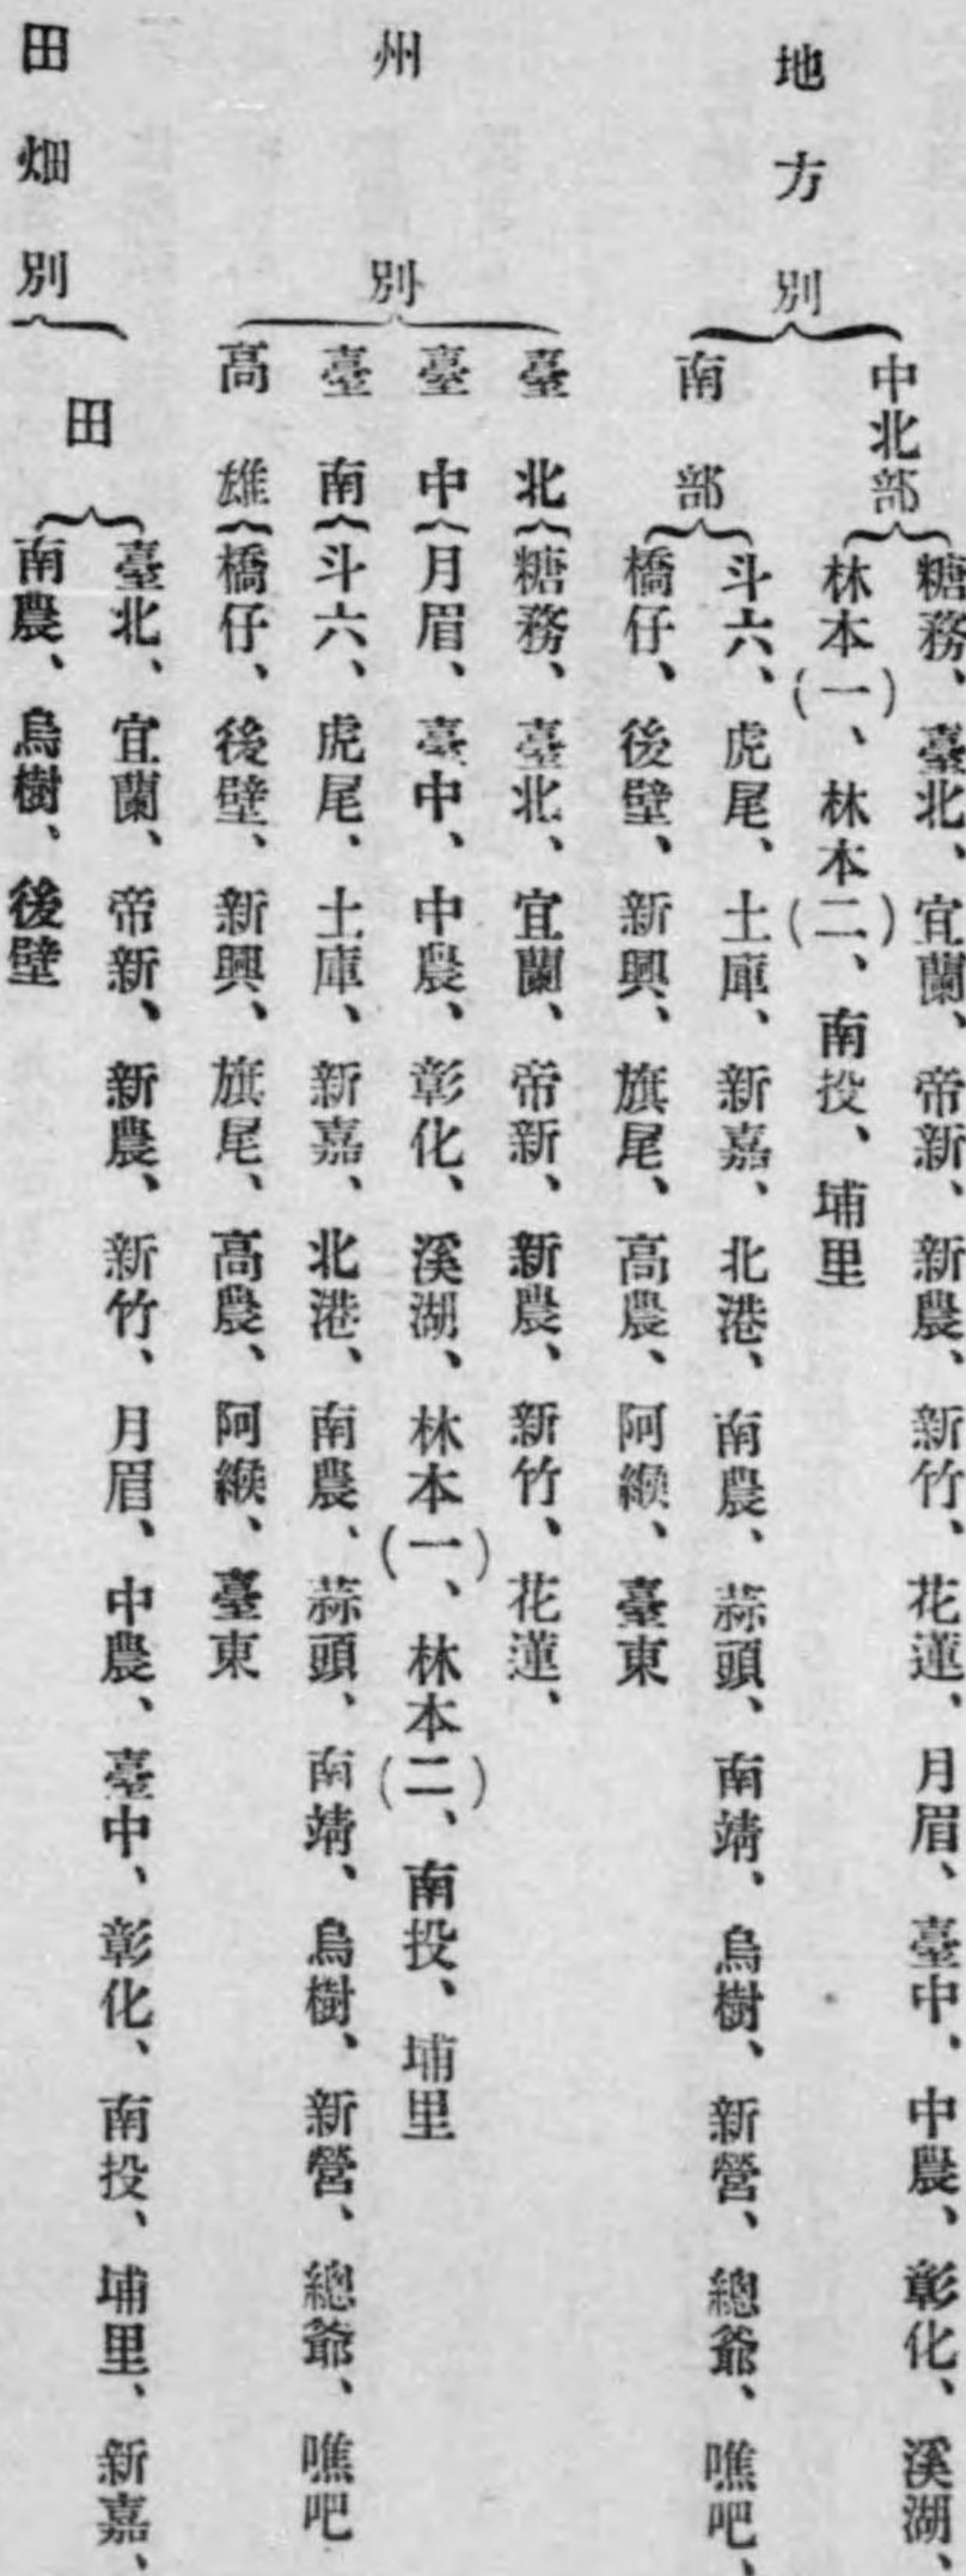 地方別
中北部
糖務、臺北、宜蘭、帝新、新農、新竹、花蓮、月眉、臺中、中農、彰化、溪湖、
林本(一)、林本(二)、南投、埔里
南部
斗六、虎尾、土庫、新嘉、北港、南農、蒜頭、南靖、烏樹、新營、總爺、噍吧、
橋仔、後壁、新興、旗尾、高農、阿緱、臺東
州別
臺北
糖務、臺北、宜蘭、帝新、新農、新竹、花蓮、
臺中
月眉、臺中、中農、彰化、溪湖、林本(一)、林本(二)、南投、埔里
臺南
斗六、虎尾、土庫、新嘉、北港、南農、蒜頭、南靖、烏樹、新營、總爺、噍吧
高雄
橋仔、後壁、新興、旗尾、高農、阿緱、臺東
田畑別
田
臺北、宜蘭、帝新、新農、新竹、月眉、中農、臺中、彰化、南投、埔里、新嘉、
南農、烏樹、後壁